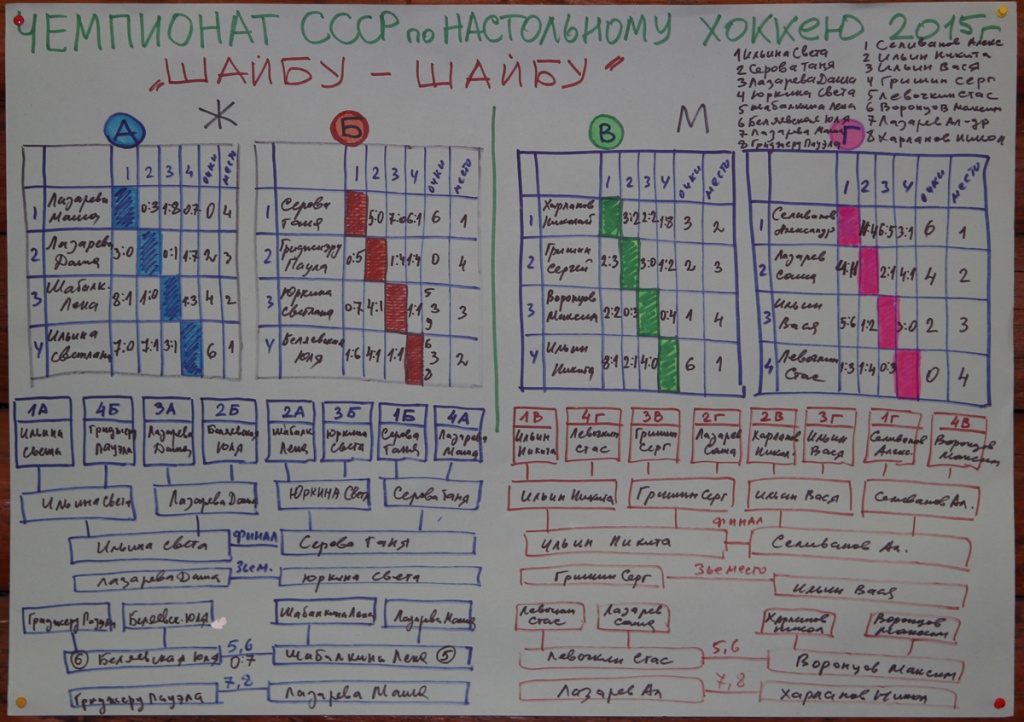 ЧЕМПИОНАТ СССР по НАСТОЛЬНОМУ ХОККЕЮ 2015г
„ШАЙБУ - ШАЙБУ"
1 Ильина Света
2 Серова Таня
3 Лазарева Даша
4 Юркина Света
5 Шабалкина Лена
6 Беляевская Юля
7 Лазарева Маша
8 Гриджеру Паула
1 Селиванов Алекс
2 Ильин Никита
3 Ильин Вася
4 Гришин Серг
5 Левочкин Стас
6 Воронцов Максим
7 Лазарев Ал-др
8 Харланов Никол
А Ж
1 2 3 4 очки место
1 Лазарева Маша 0:3 1:8 0:7 0 4
2 Лазарева Даша 3:0 0:1 1:7 2 3
3 Шабалк. Лена 8:1 1:0 1:3 4 2
4 Ильина Светлана 7:0 7:1 3:1 6 1
Б
1 2 3 4 очки место
1 Серова Таня 5:0 7:0 6:1 6 1
2 Гриджеру Паула 0:5 1:4 1:4 0 4
3 Юркина Светлана 0:7 4:1 1:1 3 3
4 Беляевская Юля 1:6 4:1 1:1 3 2
В М
1 2 3 4 очки место
1 Харланов Николай 3:2 2:2 1:8 3 2
2 Гришин Сергей 2:3 3:0 1:2 2 3
3 Воронцов Максим 2:2 0:3 0:4 1 4
4 Ильин Никита 8:1 2:1 4:0 6 1
Г
1 2 3 4 очки место
1 Селиванов Александр 6:5 3:1 6 1
2 Лазарев Саша 2:1 4:1 4 2
3 Ильин Вася 5:6 1:2 3:0 2 3
4 Левочкин Стас 1:3 1:4 0:3 0 4
1А 4Б 3А 2Б 2А 3Б 1Б 4А
Ильина Света Гриджеру Паула Лазарева Даша Беляевская Юля Шабалк Лена Юркина Света Серова Таня Лазарева Маша
Ильина Света Лазарева Даша Юркина Свет Серова Таня
Ильина Света ФИНАЛ Серова Таня
Лазарева Даша 3ье м. Юркина Света
Гриджеру Паула Беляевск. Юля Шабалкина Лена Лазарева Маша
6 Беляевская Юля 5,6 0:7 Шабалкина Лена 5
Гриджеру Паула 7,8 Лазарева Маша
1В 4Г 3В 2Г 2В 3Г 1Г 4В
Ильин Никита Левочкин Стас Гришин Серг Лазарев Саша Харланов Никол Ильин Вася Селиванов Алекс. Воронцов Максим
Ильин Никита Гришин Серг Ильин Вася Селиванов Ал.
Ильин Никита ФИНАЛ Селиванов Ал.
Гришин Серг 3ье место Ильин Вася
Левочкин Стас Лазарев Саша Харланов Никол Воронцов Максим
Левочкин Стас 5,6 Воронцов Максим
Лазарев Ал 7,8 Харланов Никол